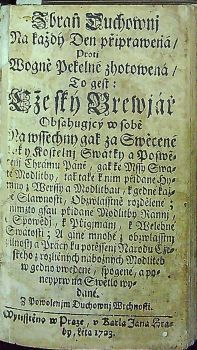 Zbraň Duchownj
Na každý Den připrawená /
Proti
Wogně Pekelné zhotowená /
To gest:
Cžeský Brewjář
Obsahugjcý w sobě
Na wssechny gak za Swěcené
tak y Kostelnj Swátky a Poswě-
cenj Chrámu Páně, gak ke Mssy Swa-
té Modlitby, tak také k nim přidané Hy-
mny z Werssy a Modlitbau, k gedné každé
Slawnosti, Obzwlásstně rozdělené;
nimžto gsau přidané Modlitby Rannj,
Spowědj, k Přigjmánj, k Welebné
Swátosti; A giné mnohé / obzwlásstnj
a Prácy ku potěssenj Národu Cže-
ského z rozličných nábožných Modliteb
w gedno uwedené, spogené, a po-
neyprw na Swětlo wy-
dané.
Z Powolenjm Duchownj Wrchnosti.
Wytisstěno w Praze, v Karla Jana Hra-
by, Léta 1703.